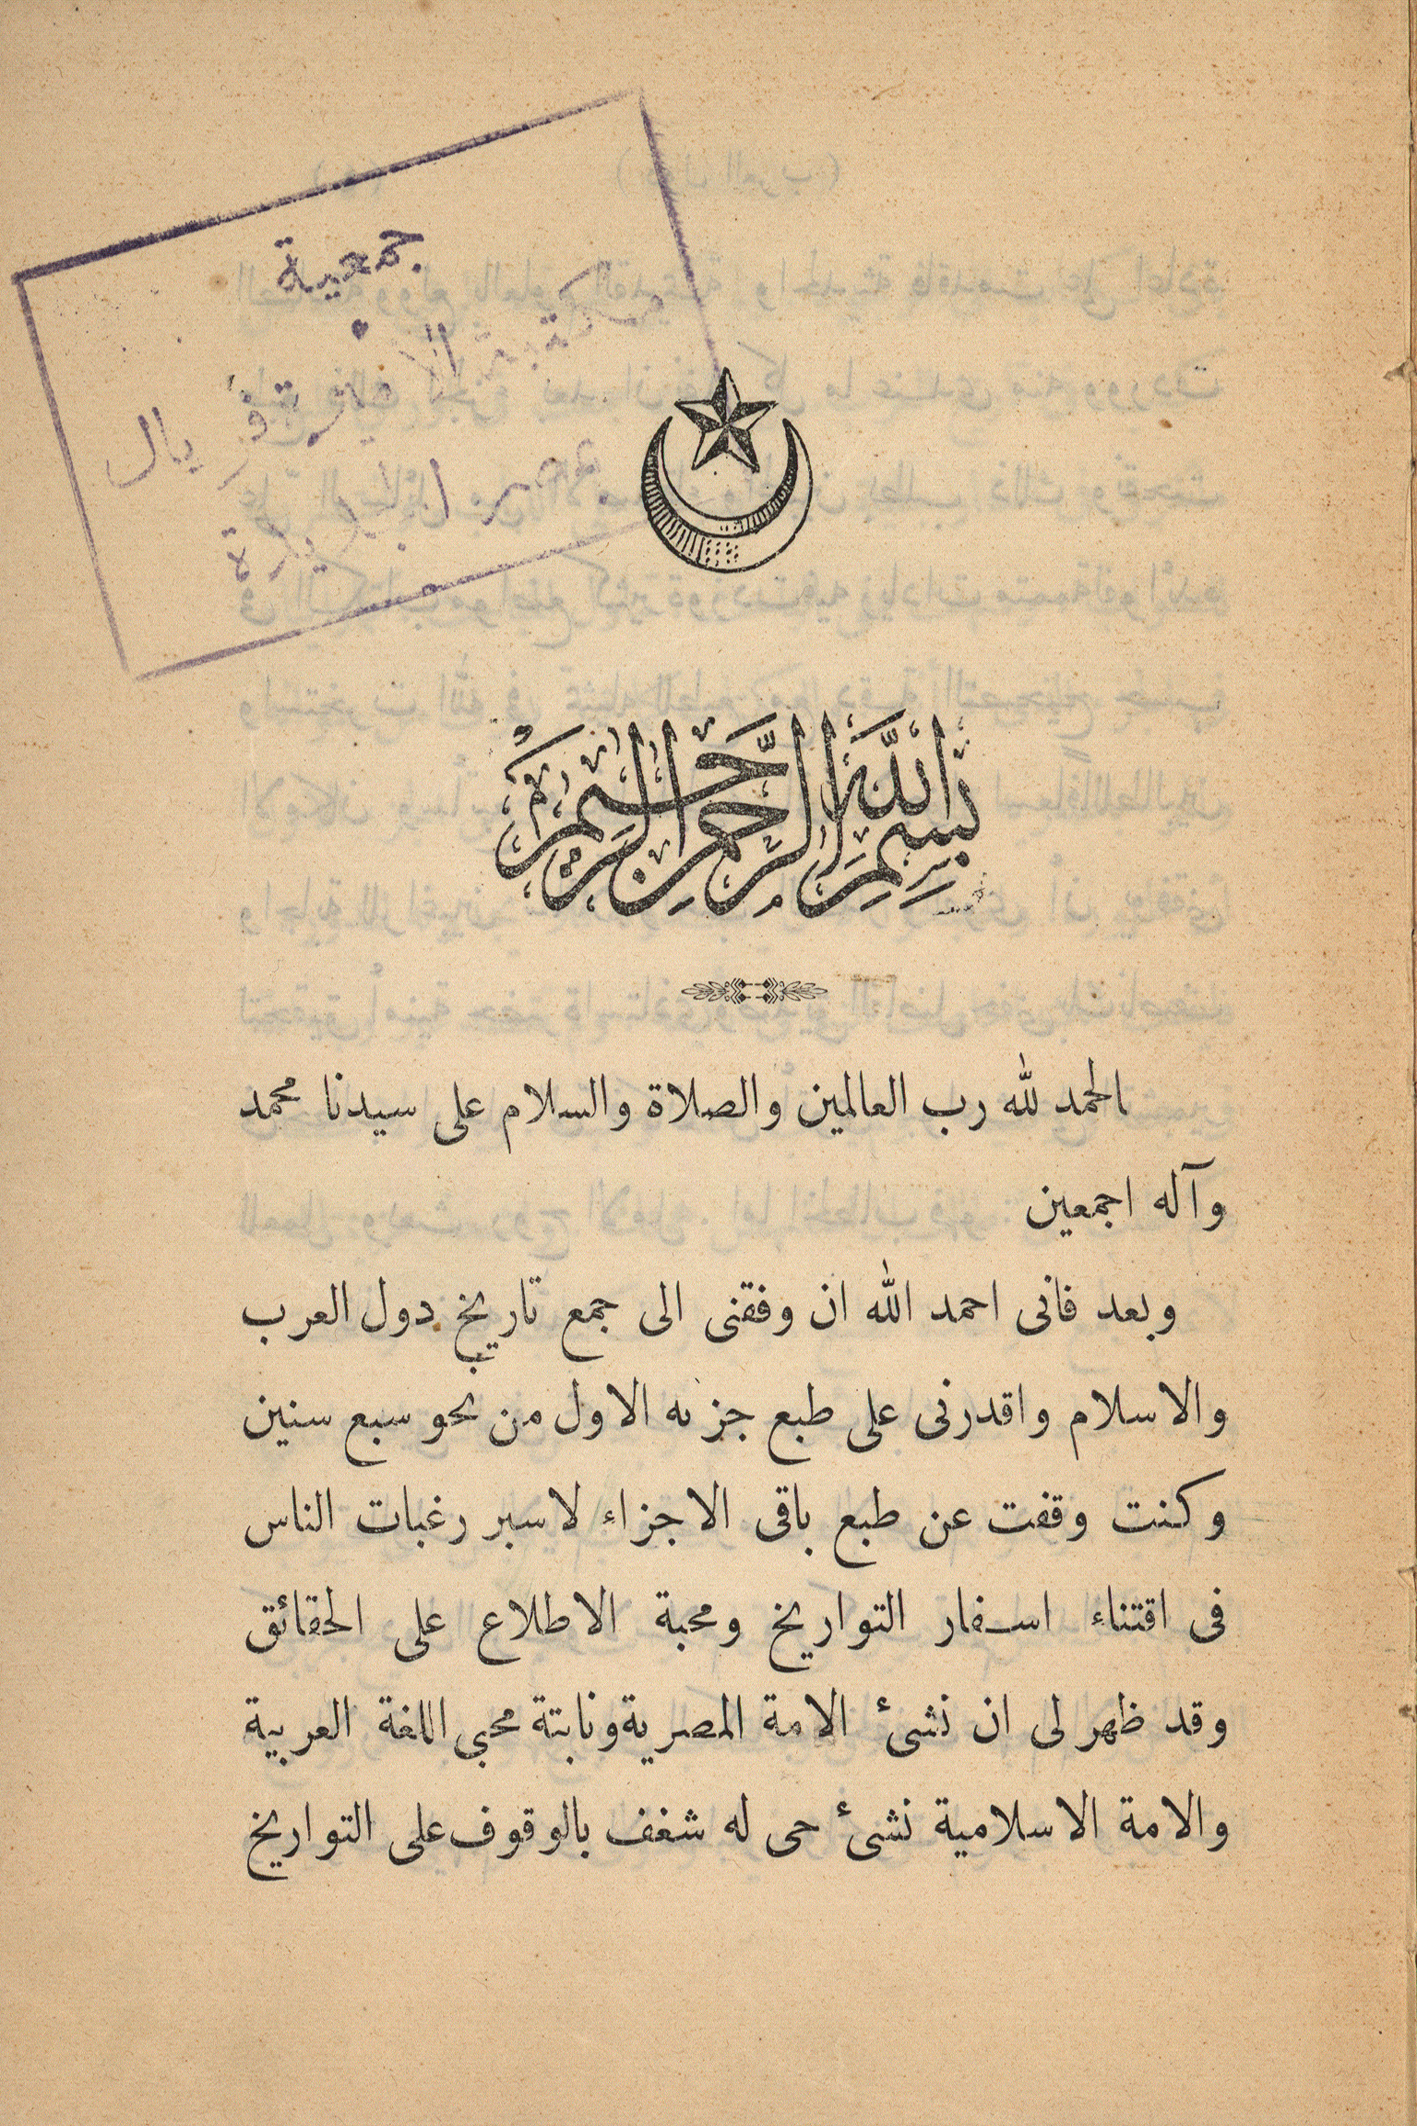 جمعية
مكتبة الأميرة فريال
بمصر الجديدة
بسم الله الرحمن الرحيم
الحمد لله رب العالمين والصلاة والسلام على سيدنا محمد
وآله اجمعين
وبعد فانى احمد الله ان وفقنى الى جمع تاريخ دول العرب
والاسلام واقدرنى على طبع جزئه الاول من نحو سبع سنين
وكنت وقفت عن طبع باقى الاجزاء لاسبر رغبات الناس
فى اقتناء اسفار التواريخ ومحبة الاطلاع على الحقائق
وقد ظهر لى ان نشئ الامة المصرية ونابتة محبي اللغة العربية
والامة الاسلامية نشئ حى له شغف بالوقوف على التواريخ